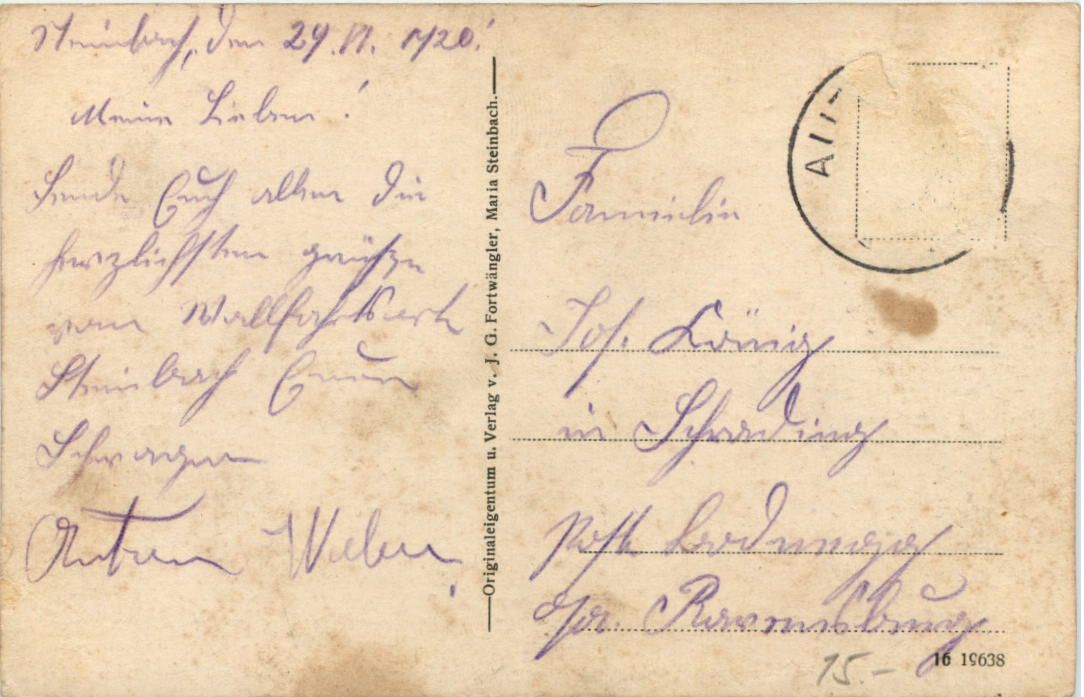 Steinbach, den 29. 11. 1920.
Meine Lieben!
Sende Euch allen die
herzlichsten Grüße
vom Wallfahrtsort
Steinbach Euer
Schwager
Anton Weber.
Originaleigentum u. Verlag v. J. G. Fortwängler, Maria Steinbach.
Familie
Jos. König
in
Post Bodnegg
Oa. Ravensburg
15.-
16 19638